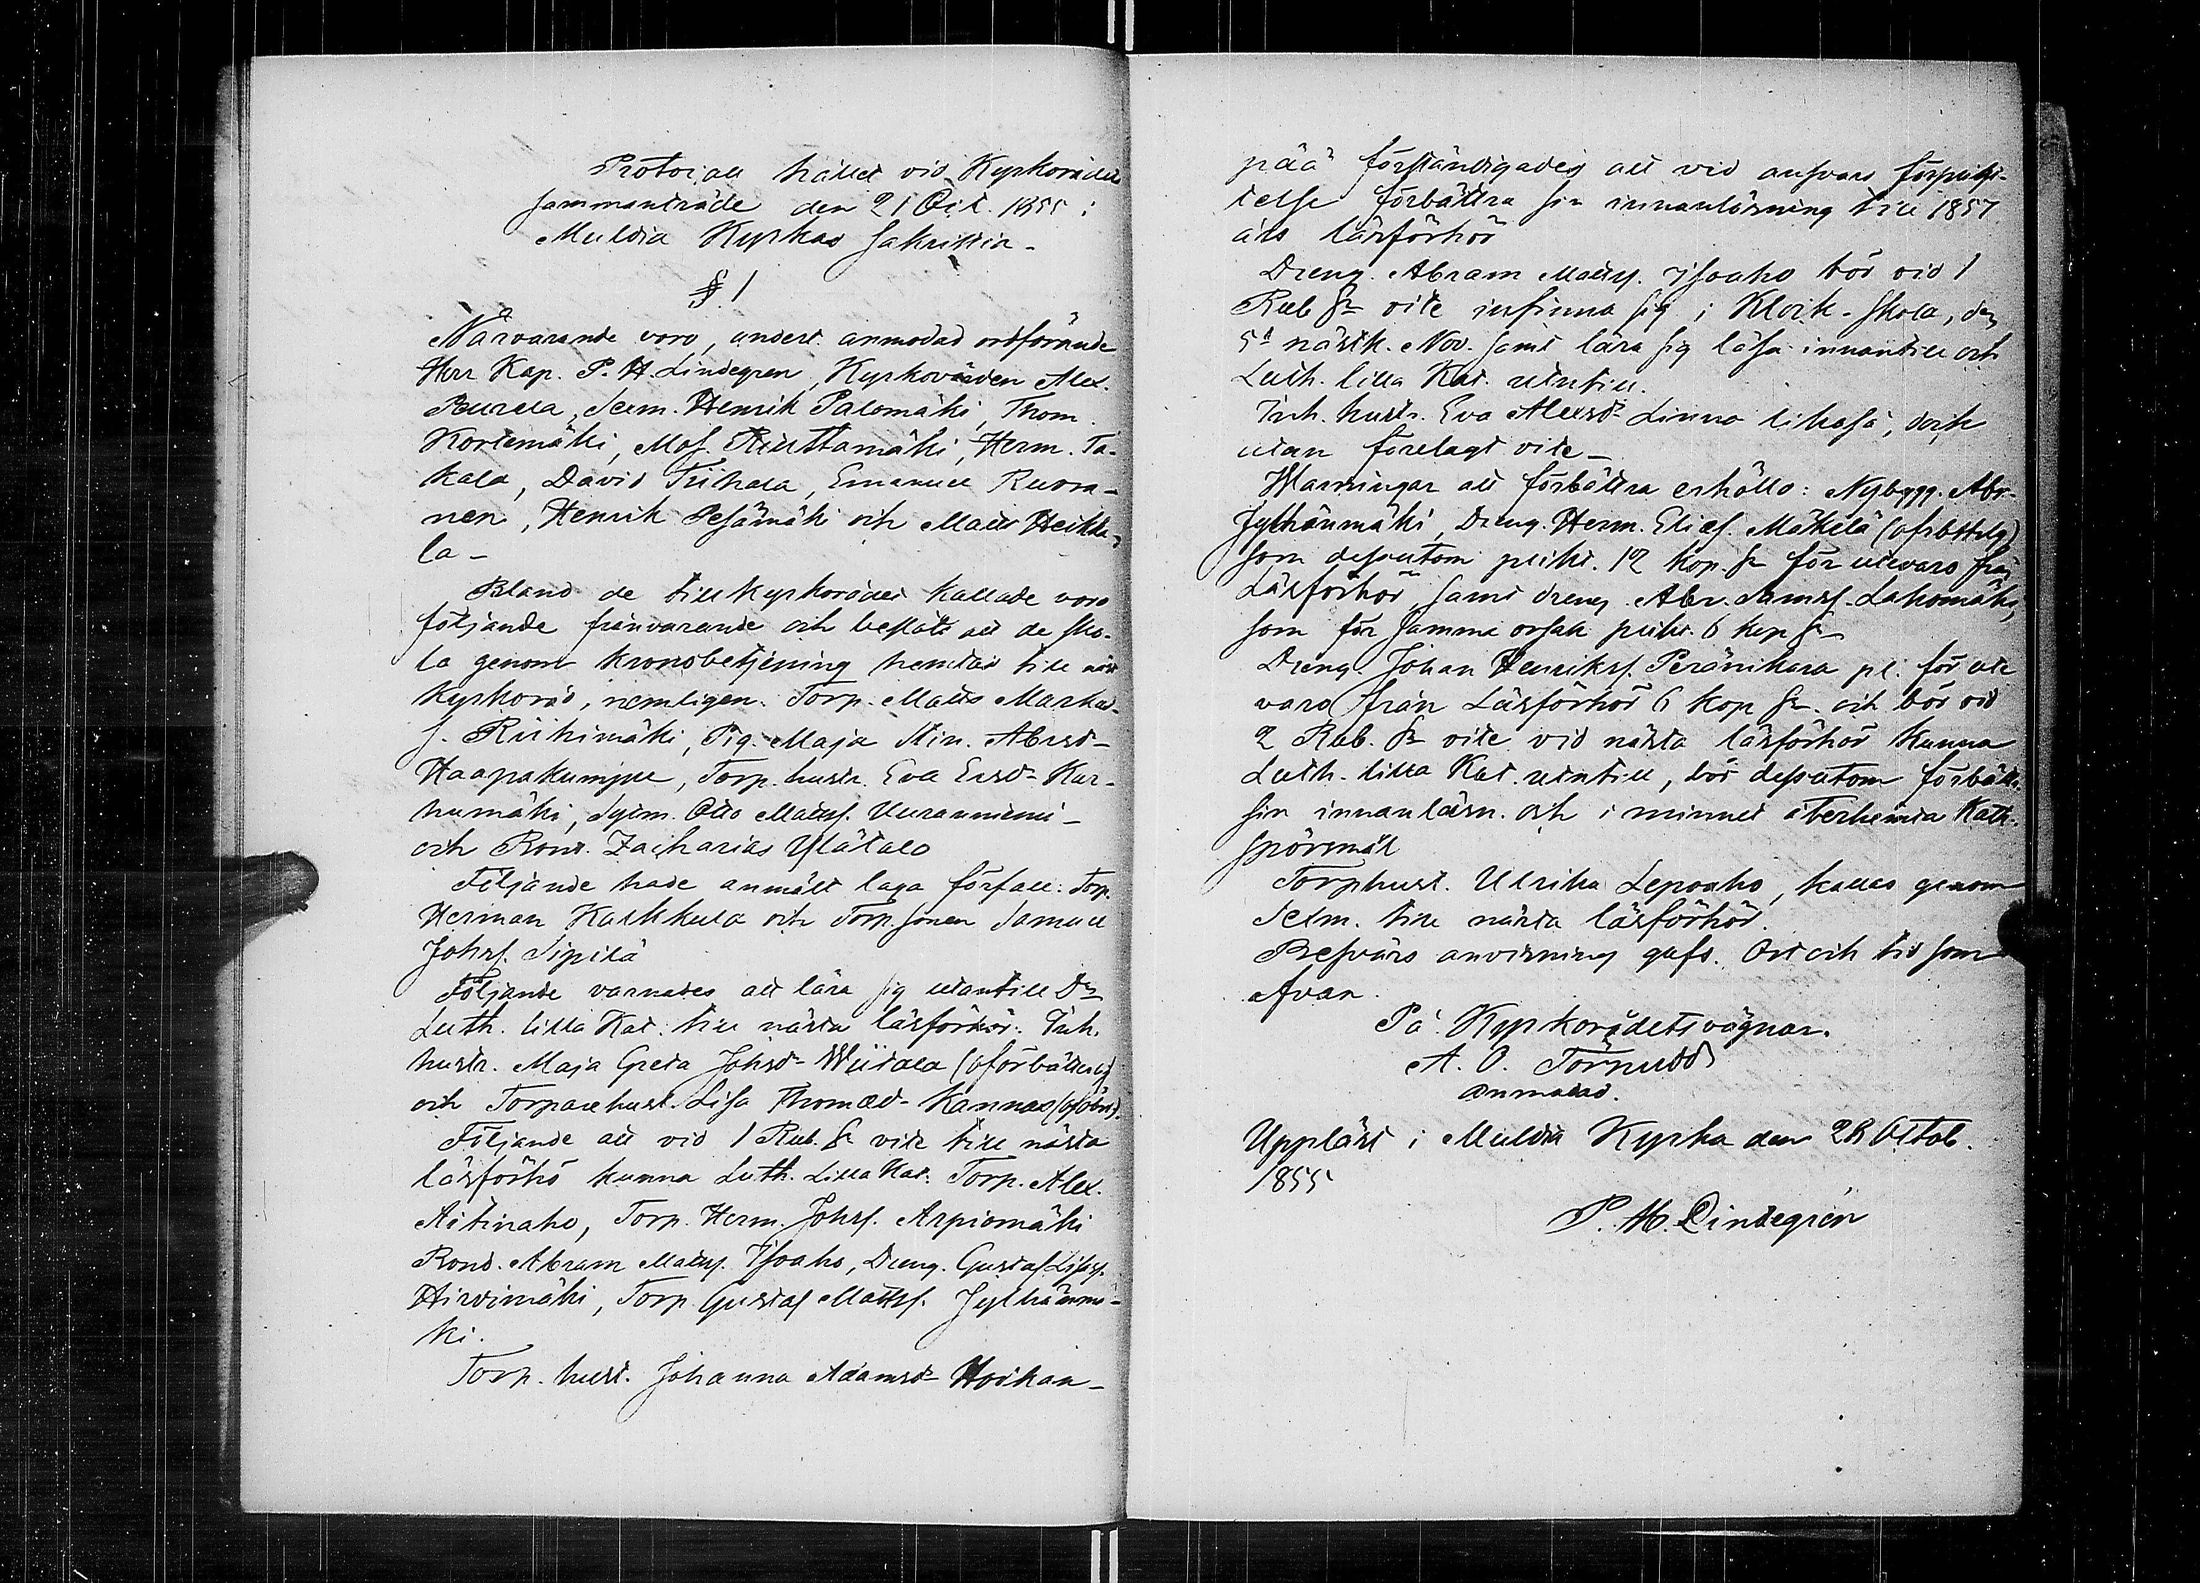 Protocoll hållet vid Kyrkorådets
sammanträde den 21 Oct. 1855 i
Muldia Kyrkas Sakristia.
§ 1
Närvarande voro, undert. anmodad ordförande
Herr Kap. P. H. Lindegren, Kyrkovärden Alex.
Peurala, Sexm. Henrik Palomäki, Thom.
Kortemäki, Mos. Riuttamäki, Herm. Ta-
kala, David Tiihala, Emanuel Ruora-
nen, Henrik Pesämäki och Matts Heikki-
la -
Bland de till Kyrkorådet kallade voro
följande frånvarande och beslöts att de sko-
la genom kronobetjening hemtas till näst
Kyrkoråd, nemligen. Torp. Matts Markus-
s. Riihimäki, Pig. Maja Stin. Abrsdr
Haapakumpu, Torp. hustr. Eva Ersdr Kar-
humäki, Sytm. Otto Mattss. Uuranniemi -
och Bond. Zacharias Ylätalo
Följande hade anmält laga förfall: Torp.
Herman Kaikkula och Torp. sonen Samuel
Johss. Sipilä
Följande varnades att lära sig utantill Dr
Luth. lilla Kat. till nästa läsförhör: Inh.
hustr. Maja Greta Johsdr Wiitala (oförbätterlig)
och Torparehust. Lisa Thomæd- Kannas (oförb.).
Följande att vid 1 Rub. Sr vite till nästa
läsförhö kunna Luth. Lilla Kat. Torp. Alex.
Aitinaho, Torp. Herm. Johss. Arpiomäki
Bond. Abram Mattss. Isoaho, Dreng. Gustaf Lisas.
Hirvimäki, Torp. Gustaf Mattss. Jylhänmä-
ki.
Torp. hust. Johanna Adamsdr Hoikan-
pää förständigades att vid ansvars förplig-
telse förbättra sin innanläsning till 1857
års läsförhör
Dreng. Abram Mattss. Isoaho bör vid 1
Rub Sr vite infinna sig i Klock-skola, den
5t nästk. Nov. samt lära sig läsa innantill och
Luth. lilla Kat. utantill.
Inh. hustr. Eva Alexsdr Linna likaså, dock
utan förelagt vite -
Warningar att förbättra erhöllo: Nybygg. Abr.
Jylhänmäki, Dreng. Herm. Eliæs. Mäkelä (ofrbttrlg)
som dessutom plikt. 12 kop. Sr för utevaro från
Läsförhör samt dreng. Abr. Samss. Lahomäki,
som för samma orsak plikt. 6 kop Sr
Dreng. Johan Henrikss. Peränikara pl. för ute
varo från Läsförhör 6 Kop Sr. och bör vid
2 Rub. Sr vite vid nästa läsförhör kunna
Luth. lilla Kat. utantill, bör dessutom förbättr.
sin innanläsn. och i minnet återhemta Kate.
spörsmål
Torphust. Ulrika Lepoaho, kallas genom
Sexm. till nästa läsförhör.
Besvärs anvisning gafs. Ort och tid som
Ofvan.
På Kyrkorådets vägnar.
A. O. Törnudd
anmodad.
Uppläst i Muldia Kyrka den 28 Octob.
1855
P. H. Lindegrén